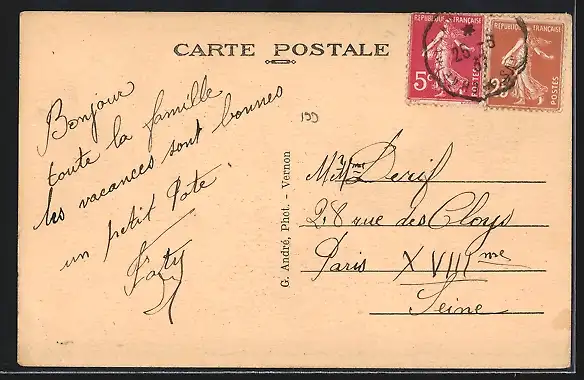 CARTE POSTALE
RÉPUBLIQUE FRANÇAISE
5c
POSTES
RÉPUBLIQUE FRANÇAISE
25c
POSTES
25 -8
Bonjour
toute la famille
les vacances sont bonnes
un petit Pote.
199
G. André, Phot. - Vernon
Derif
28 rue des Cloys
Paris XVIII me
Seine